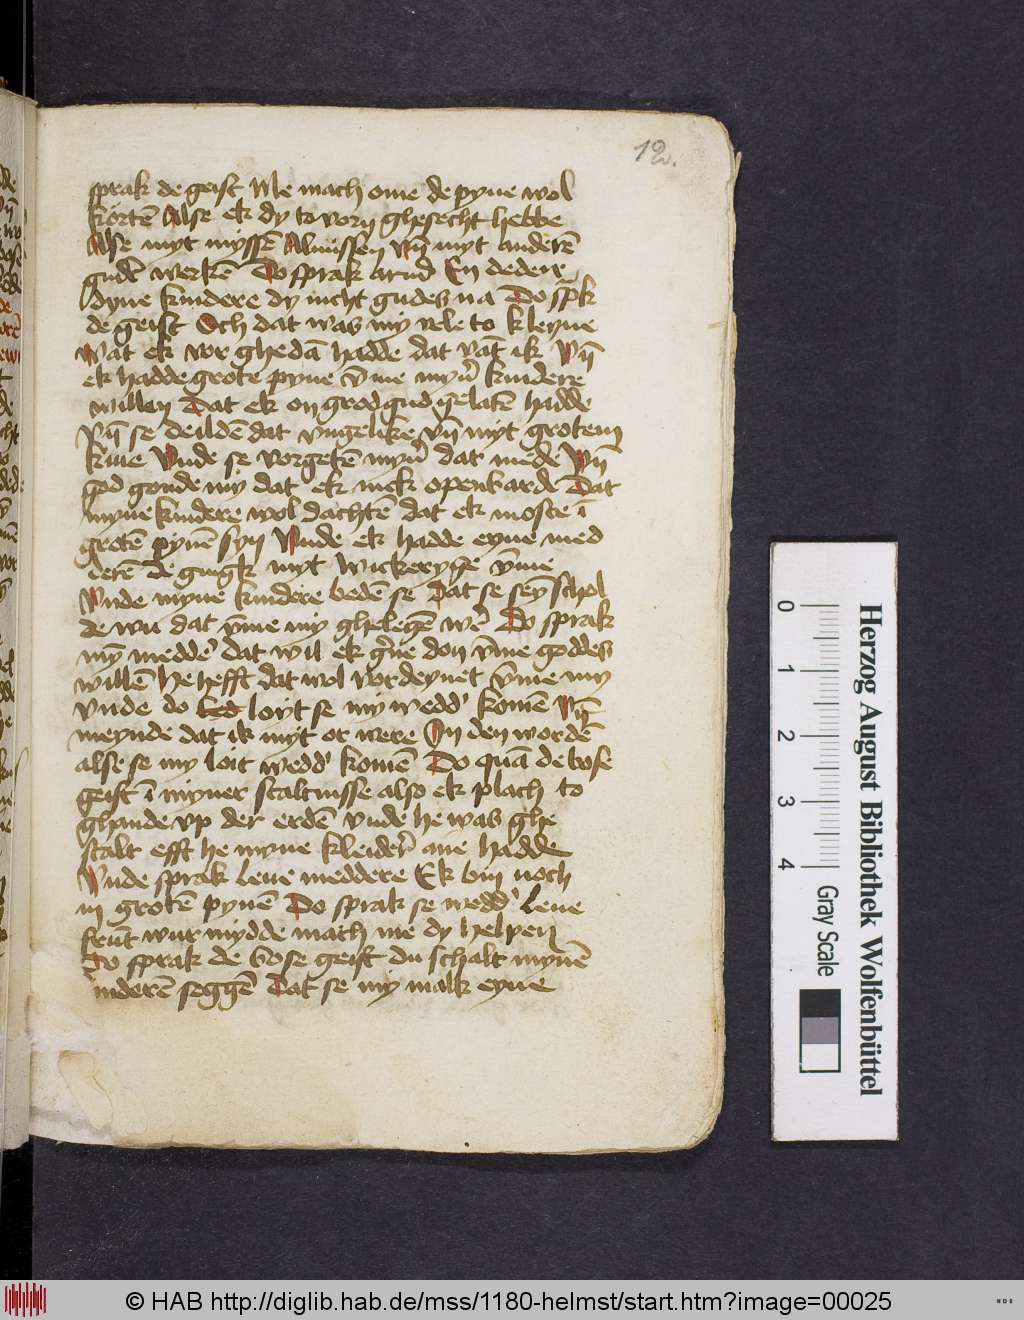 12.
sprak de geist Me mach ome de pyne wol
kortē Alse ek dy to vorn ghesecht hebbe
Alse myt myssē Almissen vn̄ myt anderē
gudē werkē Do sprak arnd En dedenː
dyne kindere dy nicht gudes na Do spk
de geist Och dat was my vele to kleyne
Wat ek vor ghedā hadde dat vāt ik Vn̄
ek hadde grote pyne v̄me myn̄ kindere
willen Dat ek on grod gud gelatē hadde
Vn̄ se deildē dat vngelike vn̄ myt grotem
kiue Vnde se vorgetē myn̄ dat mede Vn̄
god gonde my dat ek mek openbarde Dat
myne kindere wol dachtē dat ek moste ī
grotē pynē syn Vnde ek hadde eyne med
derē de gingk myt wickerye v̄me
Vnde myne kindere bedē se Dat se seyn schol
de wu dat v̄me my ghelegē wē Do sprak
my̅ medde' dat wil ek gn̄e don v̄me goddes
willē He hefft dat wol vordeynet v̄me my
Vnde do loyt se my wedd' komē Vn̄
meynde dat ik myt or were In den wordē
alse se my loit wedd' komē Do quā de bose
geist ī myner staltnisse also ek plach to
ghande vp der erdē vnde he was ghe
stalt efft he myne kleider ane hadde
Vnde sprak leue meddere Ek bin noch
in grotē pynē Do sprak se wedd' leue
frūt wur mydde mach me dy helpen
Do sprak de bose geist du schalt mynē
kinderē seggē Dat se my malk eyne
Herzog August Bibliothek Wolfenbüttel
0 1 2 3 4
Gray Scale
© HAB http://diglib.hab.de/mss/1180-helmst/start.htm?image=00025